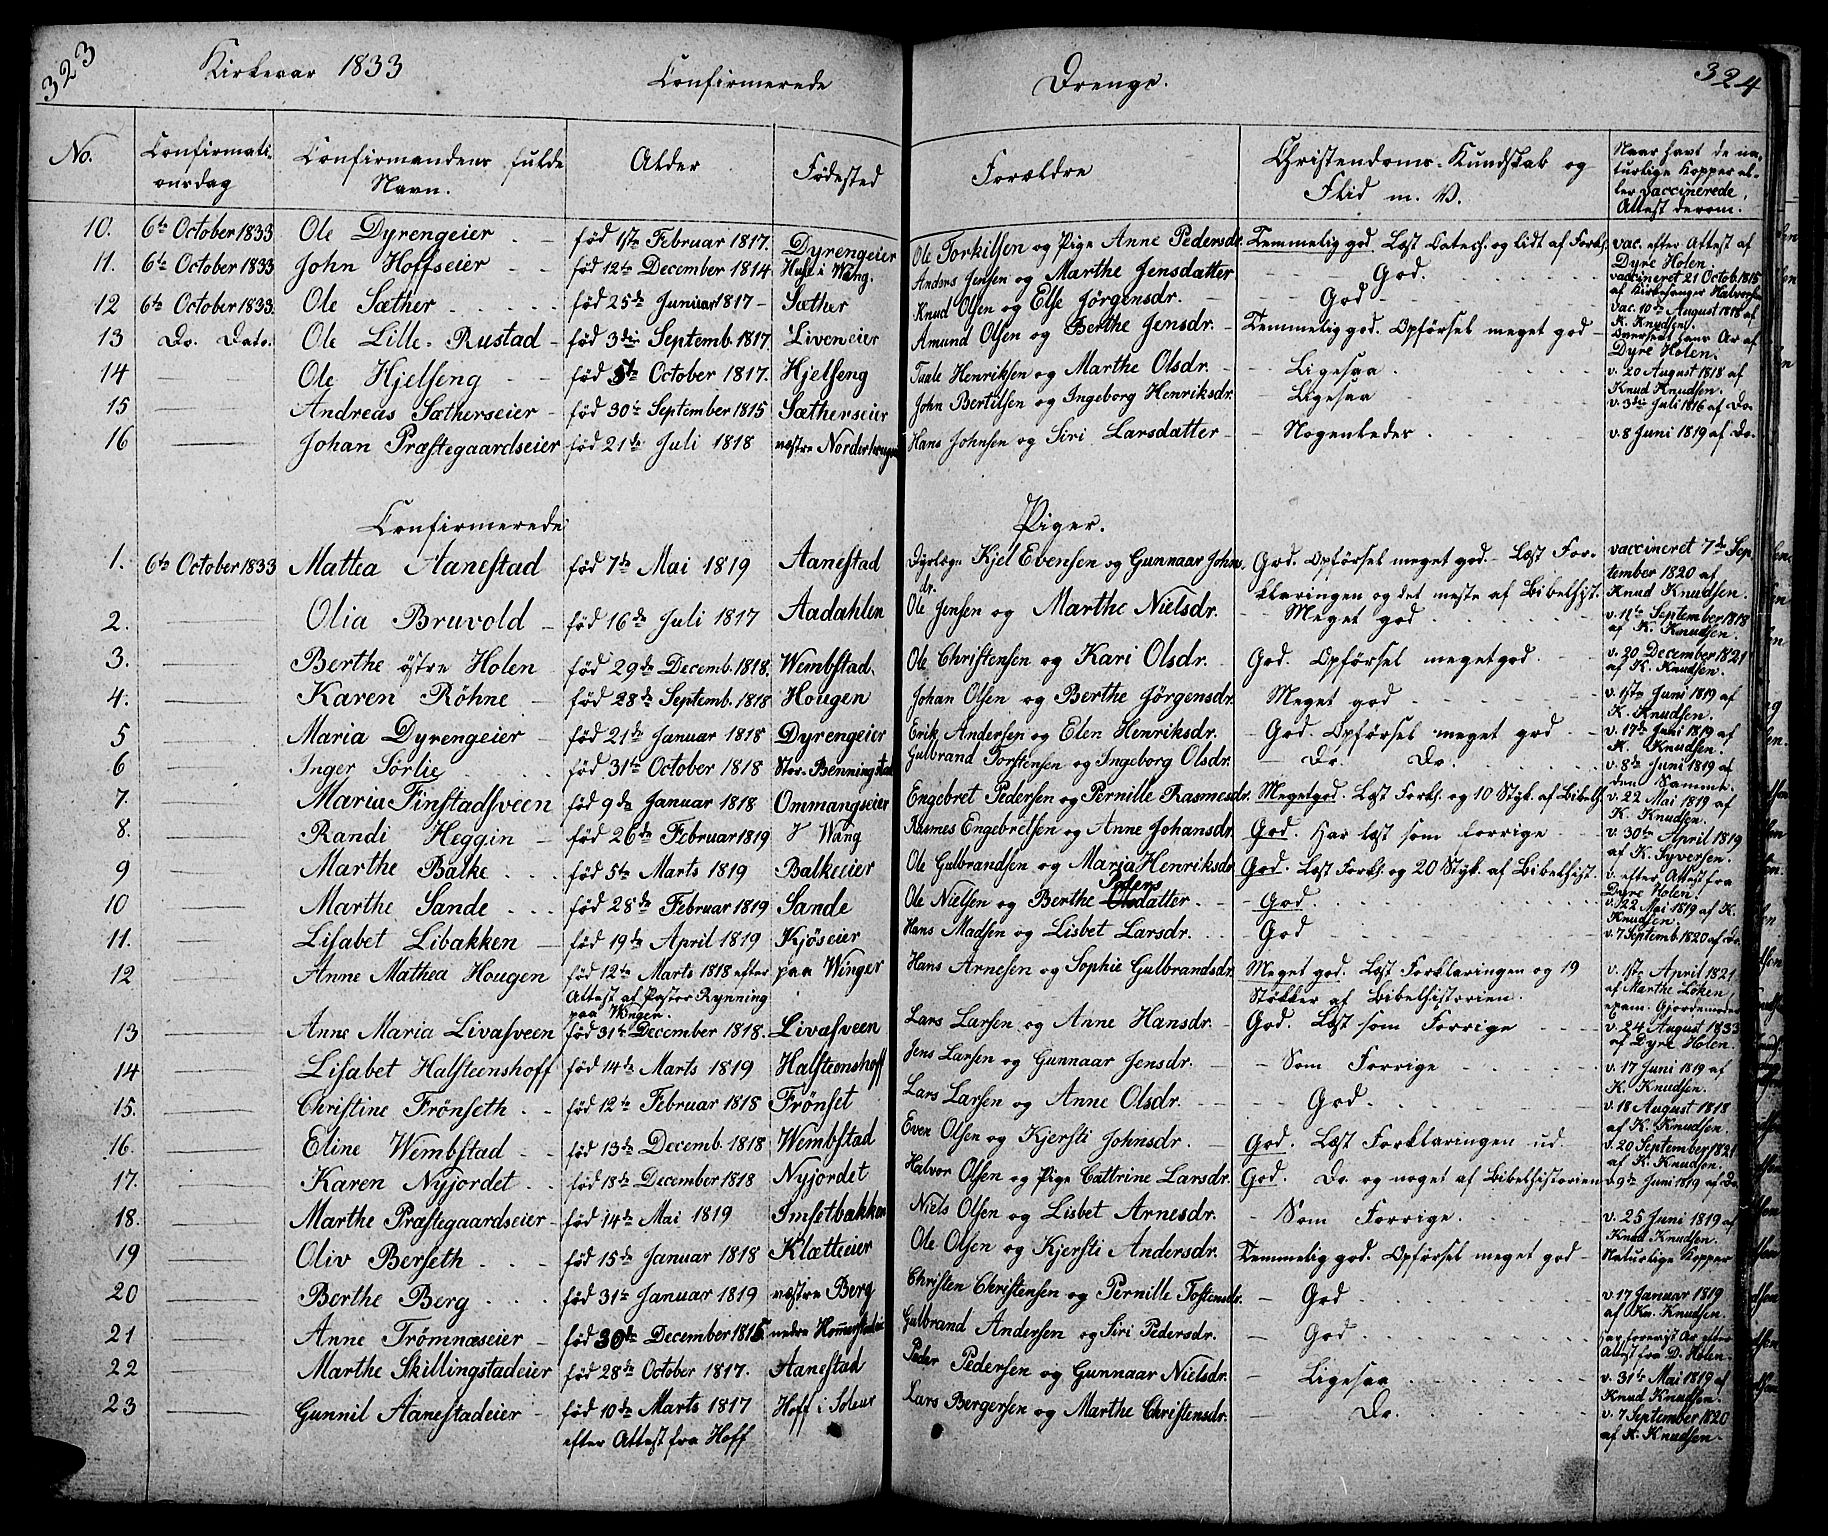 323
Kirkeaar 1833
Confirmerede
Drenge.
324
No.
Confirmati-
onsdag
Confirmandens fulde
Navn.
Alder
Fødested
Forældre
Christendoms-Kundskab og
Flid m. V.
Naar havt de na-
turlige Kopper el-
ler vaccinerede,
Attest derom.
10. 6te October 1833 Ole Dyrengeier født 1ste Februar 1817. Dyrengeier Ole Torkilsen og Pige Anne Pedersdr. Temmelig god Læst Catech. og lidt af Forkl. vac. efter Attest af
Dyre Holen.
11. 6te October 1833 John Hoffseier født 12te December 1814 Huse i Wang. Anders Jensen og Marthe Jensdatter God. vaccineret 21 Octob. 1815
af Kirkesanger Halvorsen
12 6te October 1833 Ole Sæther født 25de Januar 1817 Sæther Knud Olsen og Else Jörgensdr. God vac. 10de August 1818 af
K. Knudsen.
13 Do. Dato. Ole Lille-Rustad født 3die Septemb. 1817 Liveneier Amund Olsen og Berthe Jensdr. Temmelig god. Opførsel meget god Oversendt hans Ar af
Dyre Holen.
14 Ole Hjelseng født 5te October 1817. Hjelseng Taale Henriksen og Marthe Olsdr. Ligesaa v. 20 August 1818 af
Knud Knudsen.
15 Andreas Sætherseier født 30te September 1815 Sætherseier John Bertilsen og Ingeborg Henriksdr. Ligesaa v. 3die Juli 1816 af Do.
16 Johan Præstegaardseier født 21de Juli 1818 næstre Norderhougen Hans Johnsen og Siri Larsdatter Nogenledes v. 8 Juni 1819 af Do.
Confirmerede
Piger.
1. 6te October 1833 Mattea Aanestad født 7de Mai 1819 Aanestad Dyrlæge Kjel Evensen og Gunnaar Johns
dr. God. Opførsel meget god. Læst For-
klaringen og det meste af Bibelhist. vaccineret 7de Sep
tember 1820 af
Knud Knudsen.
2. Olia Bruvold født 16de Juli 1817 Aadahlen Ole Jensen og Marthe Nielsdr. Meget god v. 11te September 1818
af K. Knudsen.
3. Berthe östre Holen født 29de Decemb. 1818. Wembstad. Ole Christensen og Kari Olsdr. God. Opførsel megetgod. v. 20 December 1821
af K. Knudsen.
4. Karen Röhne født 28de Septemb. 1818 Hougen Johan Olsen og Berthe Jörgensdr. Meget god v. 1ste Juni 1819 af
K. Knudsen.
5 Maria Dyrengeier født 21de Januar 1818 Dyrengeier Erik Andersen og Elen Henriksdr. God. Opførsel meget god v. 17de Juni 1819 af
K. Knudsen.
6 Inger Sörlie født 31te October 1818 Stor-Benningstad Gulbrand Torstensen og Ingeborg Olsdr. Do. Do. v. 8de Juni 1819 af
den Samme.
7. Maria Finstadsveen født 9de Januar 1818 Ommangseier Engebret Pedersen og Pernille Rasmesdr. Megetgod. Læst Forkl. og 10 Styk. af Bibelh. v. 22 Mai 1819 af
K. Knudsen.
8. Randi Heggin født 26de Februar 1819 I Wang Rasmes Engebretsen og Anne Johansdr. God. Har læst som forrige v. 30te April 1819
af K. Syversen.
9 Marthe Balke født 5te Marts 1819 Balkeeier Ole Gulbrandsen og Maria Henriksdr. God. Læst Forkl. og 20 Styk. af Bibelhist. v. efter Attest fra
Dyre Holen.
10 Marthe Sande født 28de Februar 1819 Sande Ole Nielsen og Berthe Olsdatter God v. 22 Mai 1819 af K.
Knudsen.
11. Lisabet Libakken født 19de April 1819 Kjöseier Hans Madsen og Lisbet Larsdr. God v. 7 Septemb. 1820 af Do.
12 Anne Mathea Hougen født 12te Marts 1818 efter
Attest af Pastor Rynning
paa Winger. paa Winger Hans Arnesen og Sophie Gulbrandsdr. Meget god. Læst Forklaringen og 19
Stökker af Bibelhistorien. v. 1ste April 1821
af Marthe Löken
exam. Gjordemoder
13 Anne Maria Livasveen født 31te December 1818. Livasveen Lars Larsen og Anne Hansdr. God. Læst som Forrige v. 24 August 1833
af Dyre Holen.
14 Lisabet Halsteenshoff født 14de Marts 1819 Halsteenshoff Jens Larsen og Gunnaar Jensdr. Som Forrige v. 17 Juni 1819 af
K. Knudsen.
15. Christine Frönseth født 12te Februar 1818 Frönset Lars Larsen og Anne Olsdr. God. v. 18 August 1818
af K. Knudsen.
16. Eline Wembstad født 13de Decemb. 1818 Wembstad Even Olsen og Kjersti Johnsdr. God. Læst Forklaringen ud. v. 20 September 1821
af K. Knudsen.
17. Karen Nyjordet født 18de December 1818 Nyjordet Halvor Olsen og Pige Cattrine Larsdr. God. Do. og noget af Bibelhistorien v. 9de Juni 1819 af Do.
18. Marthe Præstegaardseier født 14de Mai 1819 Imsetbakken Niels Olsen og Lisbet Arnesdr. Som Forrige. v. 25 Juni 1819 af
Knud Knudsen.
19 Oliv Berseth født 15de Januar 1818 Klætteeier Ole Olsen og Kjersti Andersdr. Temmelig god. Opførsel meget god Naturlige Kopper
20 Berthe Berg født 31te Januar 1819 næstre Berg Christen Christensen og Pernille Tostensdr. God v. 17 Januar 1819
af Kn. Knudsen.
21 Anne Trömnæseier født 30de December 1815 nedre Hommerstadeie Gulbrand Andersen og Siri Pedersdr. God Har forevist Ar efter
Attest fra D. Holen.
22 Marthe Skillingstadeier født 28de October 1817. Aanestad Peder Pedersen og Gunnaar Nielsdr. Ligesaa v. 31te Mai 1819 af
Knud Knudsen.
23 Gunnil Aanestadeier født 10de Marts 1817
efter Attest fra Hoff Hoff i Soleur Lars Bergersen og Marthe Christensdr. Do. v. 7 September 1820
af K. Knudsen.